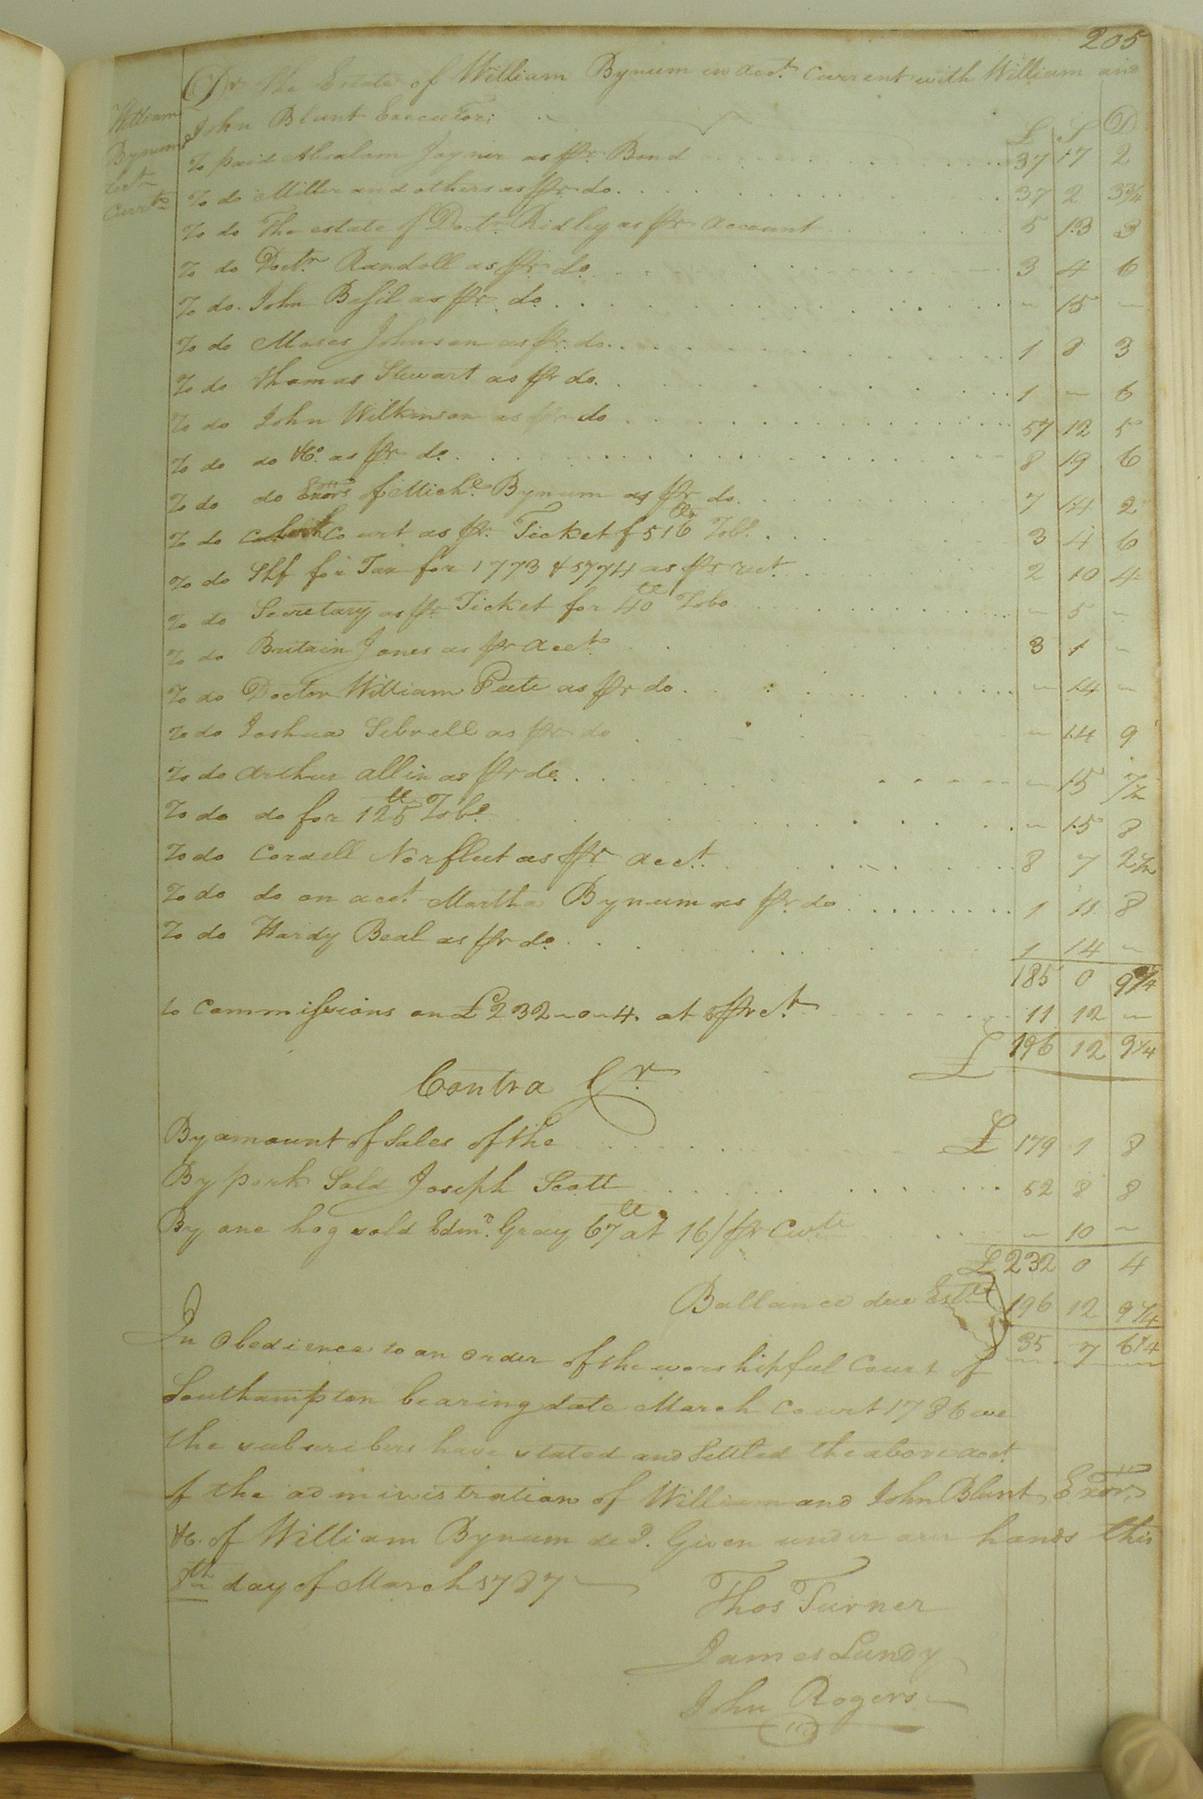 205
Dr. The Estate of William Bynum in acct. Current with William and
John Blunt Executor:
William
Bynums
Acct
Currt
£ S D
To paid Abraham Joyner as pr Bond 37 17 2
To do Miller and others as pr do. 37 2 3¾
To do The estate of Doctr. Ridley as pr account 5 13 3
To do Doctr. Randoll as pr do 3 4 6
To do. John Basil as pr. do. – 15 –
To do Moses Johnson as pr. do. 1 8 3
To do Thomas Stewart as pr do. 1 – 6
To do John Wilkinson as pr do 57 12 5
To do do &c. as pr do. 8 19 6
To do do Exors of Miche. Bynum as pr do. 7 14 2
To do Court as pr. Ticket f 516 Tobo. 3 4 6
To do Shf for Tax for 1773 & 1774 as pr rect. 2 10 4
To do Secretary as pr Ticket for 40 Tobo – 5 –
To do Britain Jones as pr acct. 3 1 –
To do Doctor William Peete as pr do. – 14 –
To do Joshua Sebrell as pr do – 14 9
To do Arthur Allin as pr do. – 15 7½
To do do for 125 lb Tobo – 15 8
To do Cordell Norfleet as pr acct. 8 7 2½
To do do on acct. Martha Bynum as pr. do 1 11 8
To do Hardy Beal as pr do. 1 14 –
185 0 9¼
to Commissions on £232–0–4. at 5 pr Ct. 11 12 –
£ 196 12 9¼
Contra Cr.
By amount of Sales of the £ 179 1 8
By pork Sold Joseph Scott 52 8 8
By one hog sold Edmd. Gray 67 lb at 16/ pr Cwt – 10 –
£ 232 0 4
Ballance due Este. 196 12 9¼
35 7 6¼
In Obedience to an order of the worshipful Court of
Southampton bearing date March Court 1786 we
the subscribers have stated and Settled the above acct.
of the administration of William and John Blunt Exors.
&c. of William Bynum decd. Given under our hands this
8th day of March 1787
Thos Turner
James Lundy
John Rogers